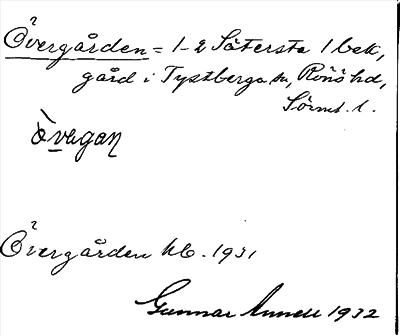 Övergården = 1-2 Sätersta 1 bek,
gård i Tystberga sn, Rönö hd,
Sörml. l.
òvagaɲ
Övergården kb. 1931
Gunnar Annell 1932